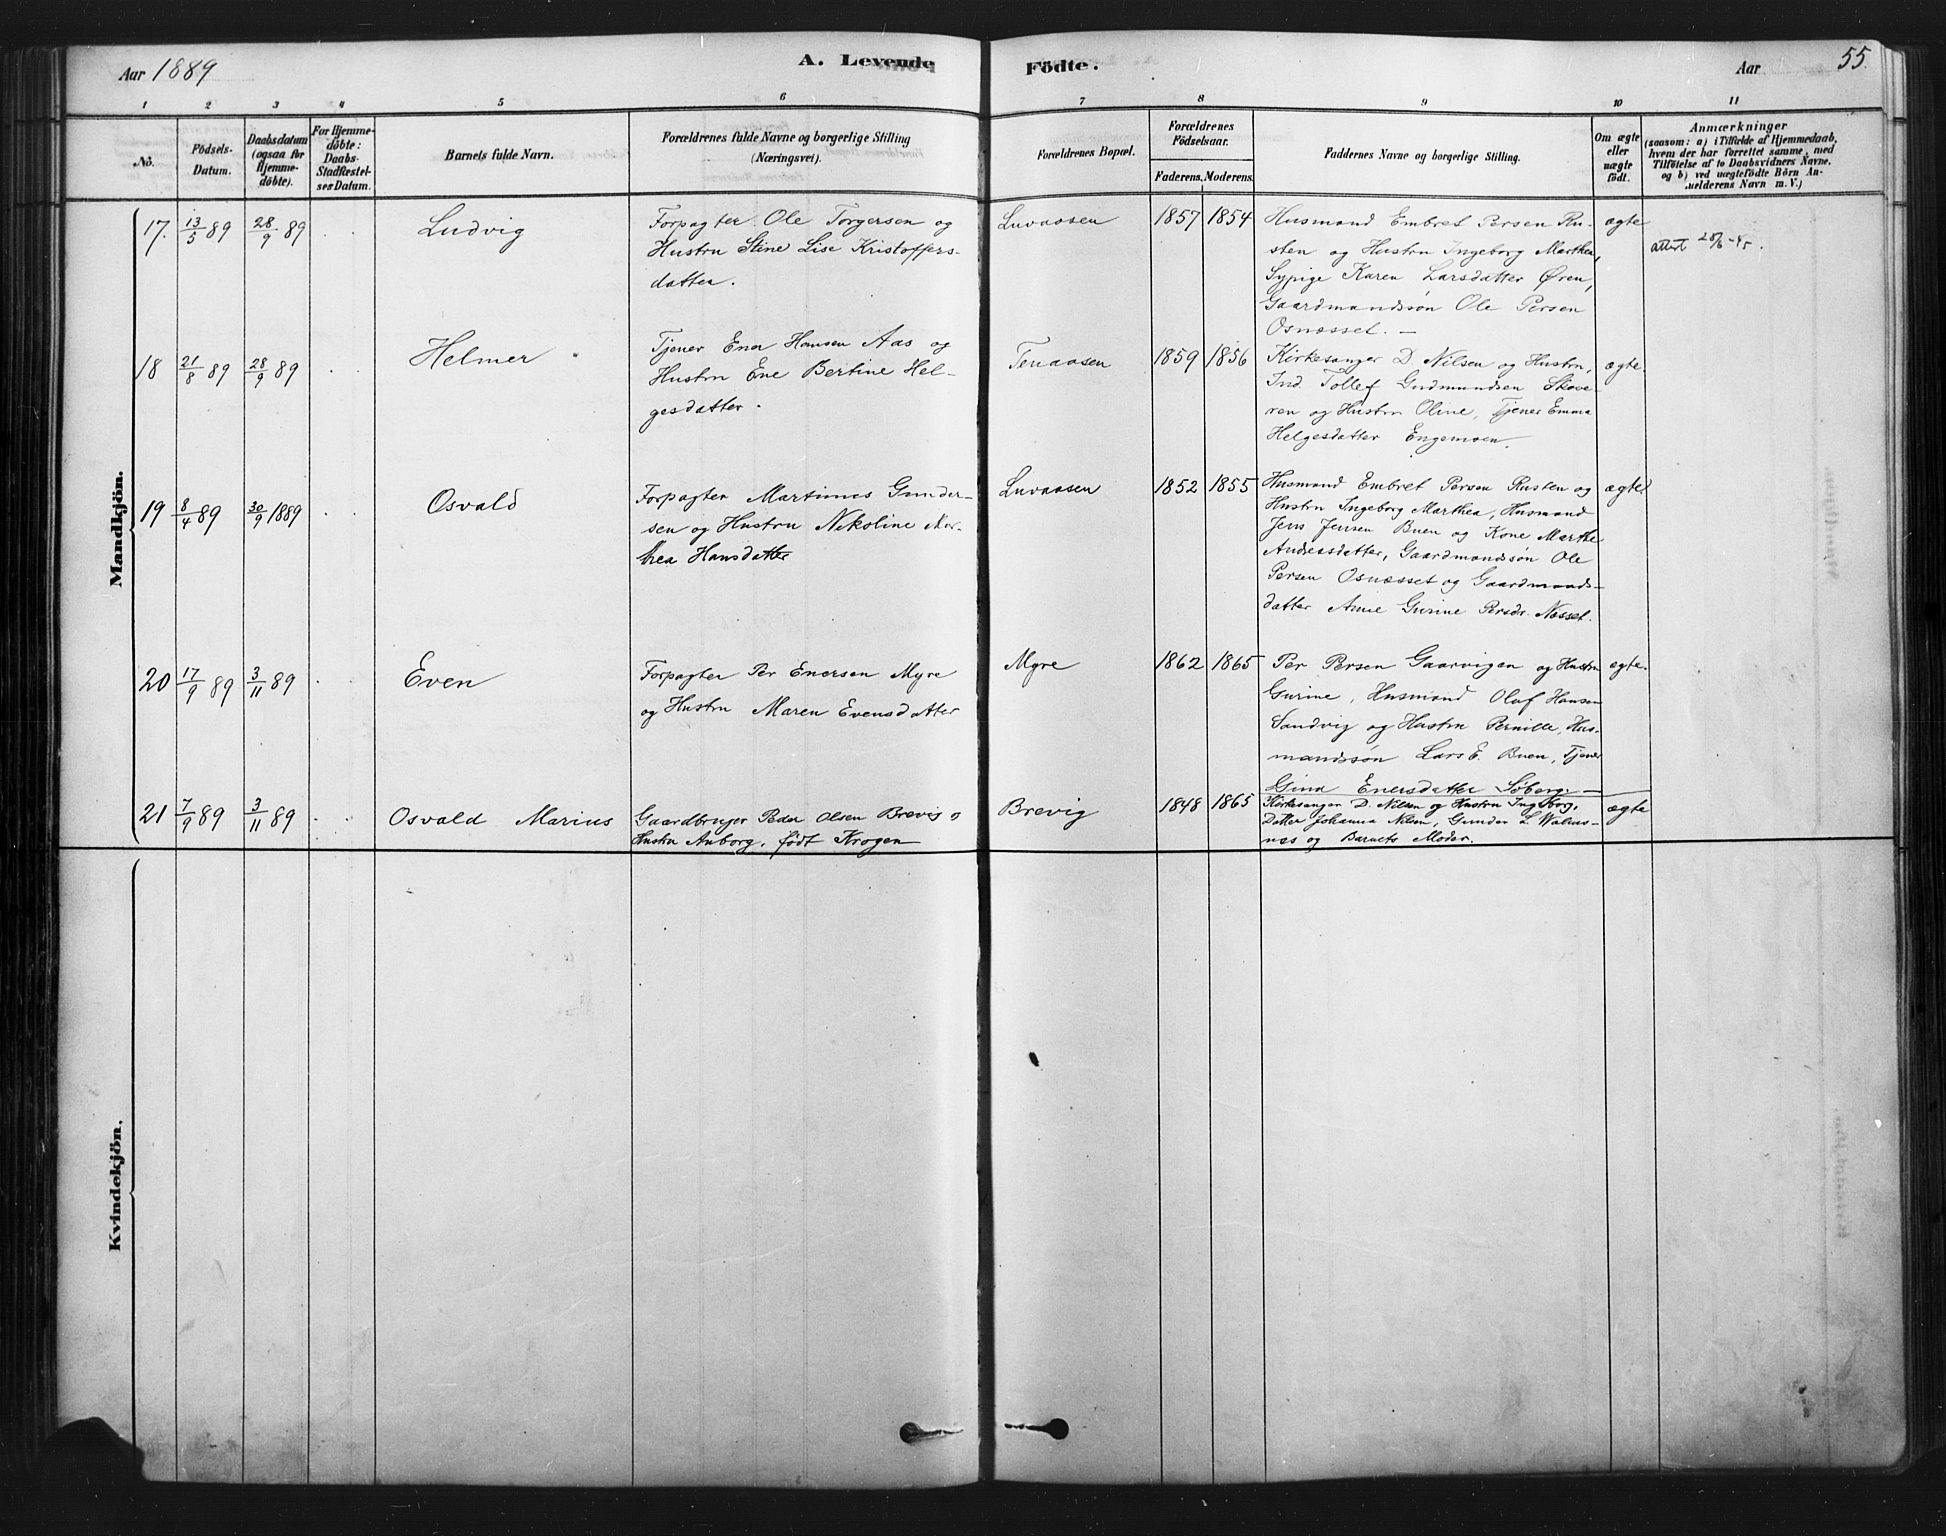 Aar 1889
A. Levende
Födte.
Aar
55.
1 2 3 4 5 6 7 8 9 10 11
No.
Födsels-
Datum.
Daabsdatum
(ogsaa for
Hjemme-
döbte).
For Hjemme-
döbte:
Daabs-
Stadfæstel-
ses Datum.
Barnets fulde Navn.
Forældrenes fulde Navne og borgerlige Stilling
(Næringsvei).
Forældrenes Bopæl.
Forældrenes
Födselsaar.
Faderens. Moderens.
Faddernes Navne og borgerlige Stilling.
Om ægte
eller
uægte
födt.
Anmærkninger
(saasom: a) i Tilfælde af Hjemmedaab,
hvem der har forrettet samme, med
Tilföielse af to Daabsvidners Navne,
og b) ved uægtefödte Börn An-
melderens Navn m. V.)
Mandkjön.
17. 13/5 89 28/9 89
Ludvig
Forpagter Ole Torgersen og
Hustru Stine Lise Kristoffers-
datter.
Luvaasen
1857 1854
Husmand Embret Persen Ru-
sten og Hustru Ingeborg Marthea,
Sypige Karen Larsdatter Øren,
Gaardmandssøn Ole Persen
Osnæsset. —
ægte
attest
18 21/8 89 28/9 89
Helmer
Tjener Ener Hansen Aas og
Hustru Ene Bertine Hel-
gesdatter.
Tenaasen
1859 1856
Kirkesanger D. Nilsen og Hustru,
Ind. Tollef Gudmundsen Skove-
ren og Hustru Oline, Tjener Emma
Helgesdatter Engemoen.
ægte
19 8/4 89 30/9 1889
Osvald
Forpagter Martinus Gunder-
sen og Hustru Nikoline Mar-
thea Hansdatter
Luvaasen
1852 1855
Husmand Embret Persen Rusten og
Hustru Ingeborg Marthea, Husmand
Jens Jensen Buen og Kone Marthe
Andreasdatter, Gaardmandssøn Ole
Persen Osnæsset og Gaardmands-
datter Anne Gurine Persdr. Næsset.
ægte
20 17/9 89 3/11 89
Even
Forpagter Per Enersen Myre
og Hustru Maren Evensdatter
Myre
1862 1865
Per Persen Gaarvigen og Hustru
Gurine, Husmand Oluf Hansen
Sandvig og Hustru Pernille, Hus-
mandssøn Lars E. Buen, Tjener
Gina Enersdatter Søberg. —
ægte.
21 7/9 89 3/11 89
Osvald Marius
Gaardbruger Peder Olsen Brevig o
Hustru Anborg, født Krogen
Brevig
1848 1865
Kirkesanger D. Nilsen og Hustru Ingeborg,
Datter Johanna Nilsen, Gunder L. Walms-
næs og Barnets Moder.
ægte
Kvindekjön.